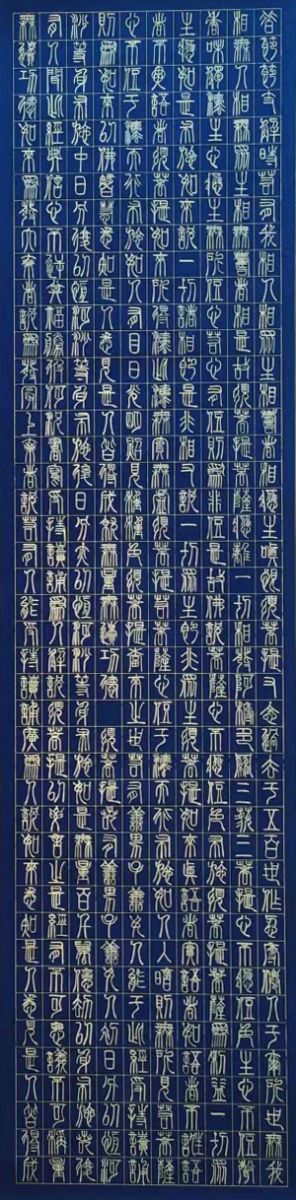 昔節節支解時若有我相人相眾生相壽者相應生瞋恨須菩提又念過去於五百世作忍辱仙人於爾所世無我
相無人相無眾生相無壽者相是故須菩提菩薩應離一切相發阿耨多羅三藐三菩提心不應住色生心不應住聲
香味觸法生心應生無所住心若心有住則為非住是故佛說菩薩心不應住色布施須菩提菩薩為利益一切眾
生應如是布施如來說一切諸相即是非相又說一切眾生即非眾生須菩提如來是真語者實語者如語者不誑語
者不異語者須菩提如來所得法此法無實無虛須菩提若菩薩心住於法而行布施如人入暗則無所見若菩薩
心不住於法而行布施如人有目日光明照見種種色須菩提當來之世若有善男子善女人能於此經受持讀誦
則為如來以佛智慧悉知是人悉見是人皆得成就無量無邊功德須菩提若有善男子善女人初日分以恆河
沙等身布施中日分復以恆河沙等身布施後日分亦以恆河沙等身布施如是無量百千萬億劫以身布施若復
有人聞此經典信心不逆其福勝彼何況書寫受持讀誦為人解說須菩提以要言之是經有不可思議不可稱量
無邊功德如來為發大乘者說為發最上乘者說若有人能受持讀誦廣為人說如來悉知是人悉見是人皆得成